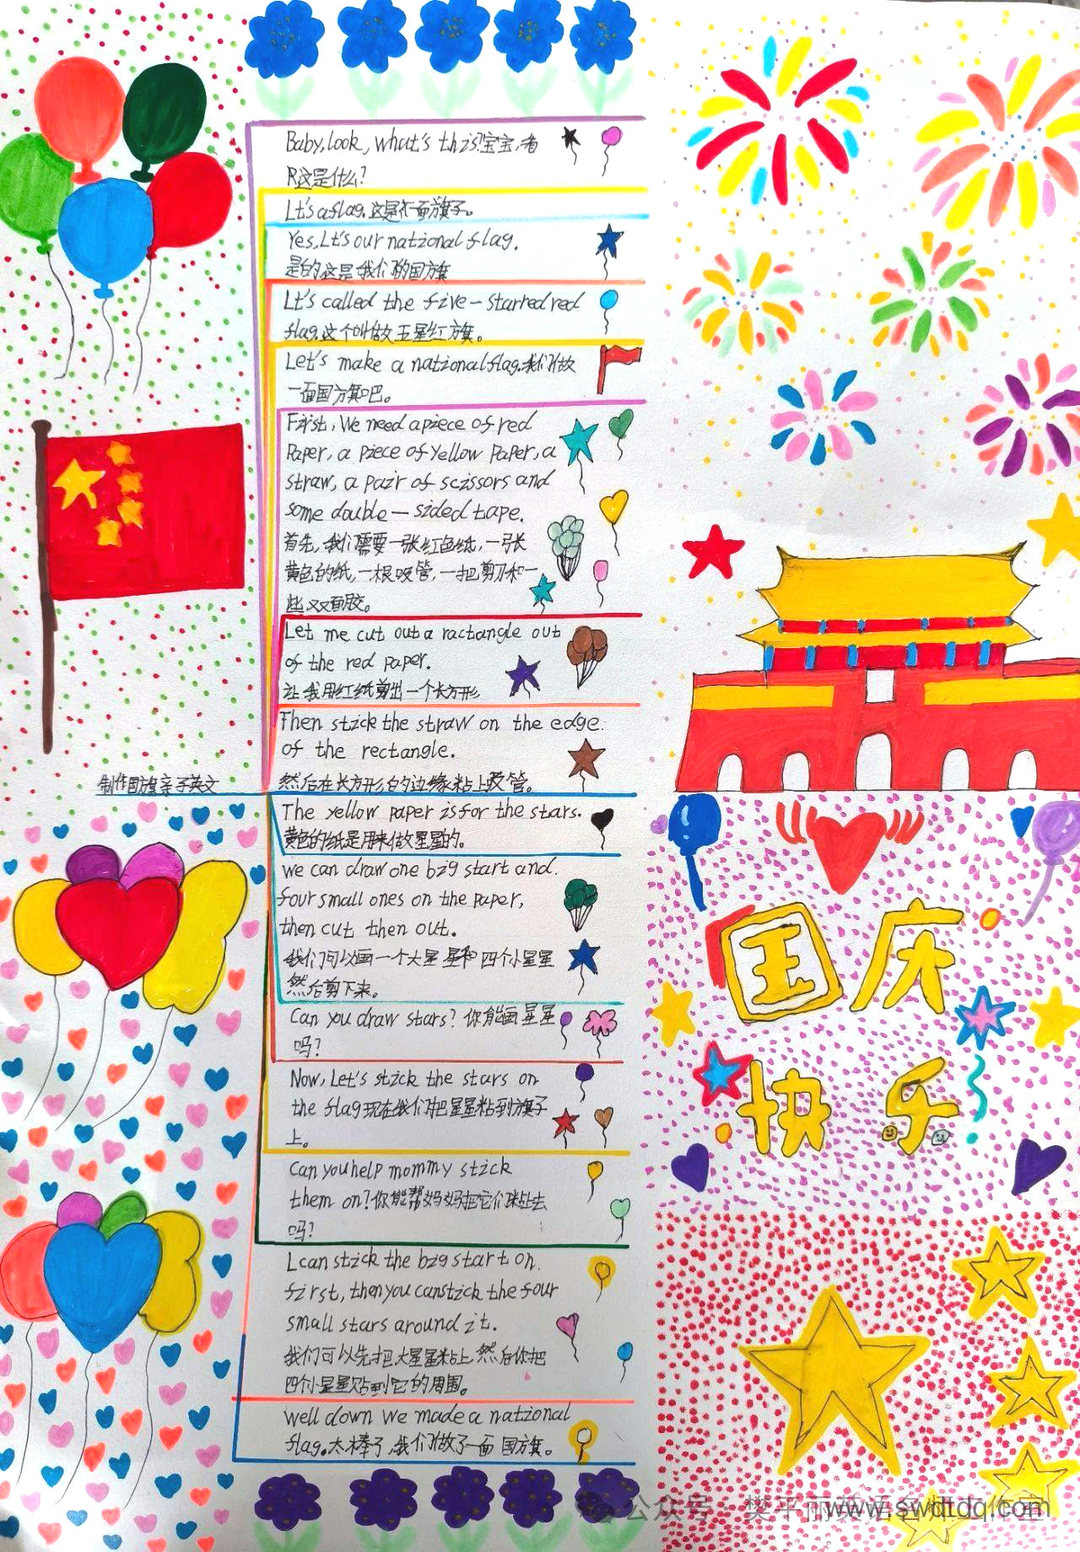 Baby,look, what's this?宝宝,看
R这是什么?
Lt's a flag.这是一面旗子。
Yes,Lt's our national flag.
是的这是我们的国旗
Lt's called the five-starred red
flag.这个叫做五星红旗。
Let's make a national flag.我们做
一面国旗吧。
First, We need a piece of red
Paper, a piece of yellow paper, a
straw, a pair of scissors and
some double-sided tape.
首先,我们需要一张红色纸,一张
黄色的纸,一根吸管,一把剪刀和一
些双面胶。
Let me cut out a ractangle out
of the red paper.
让我用红纸剪出一个长方形
Then stick the straw on the edge.
of the rectangle.
然后在长方形的边缘粘上吸管。
制作国旗亲子英文
The yellow paper is for the stars.
黄色的纸是用来做星星的。
we can draw one big start and.
four small ones on the paper,
then cut then out.
我们可以画一个大星星和四个小星星
然后剪下来。
Can you draw stars? 你能画星星
吗?
Now, Let's stick the stars on
the flag现在我们把星星粘到旗子
上。
Can you help mommy stick
them on?你能帮妈妈把它们粘上去
吗?
Lcan stick the big start on.
first, then you can stick the four
small stars around it.
我们可以先把大星星粘上,然后你把
四个小星星贴到它的周围。
well down we made a national
flag.太棒了,我们做了一面国旗。
国庆
快乐
公众号
www.swdtdq.com